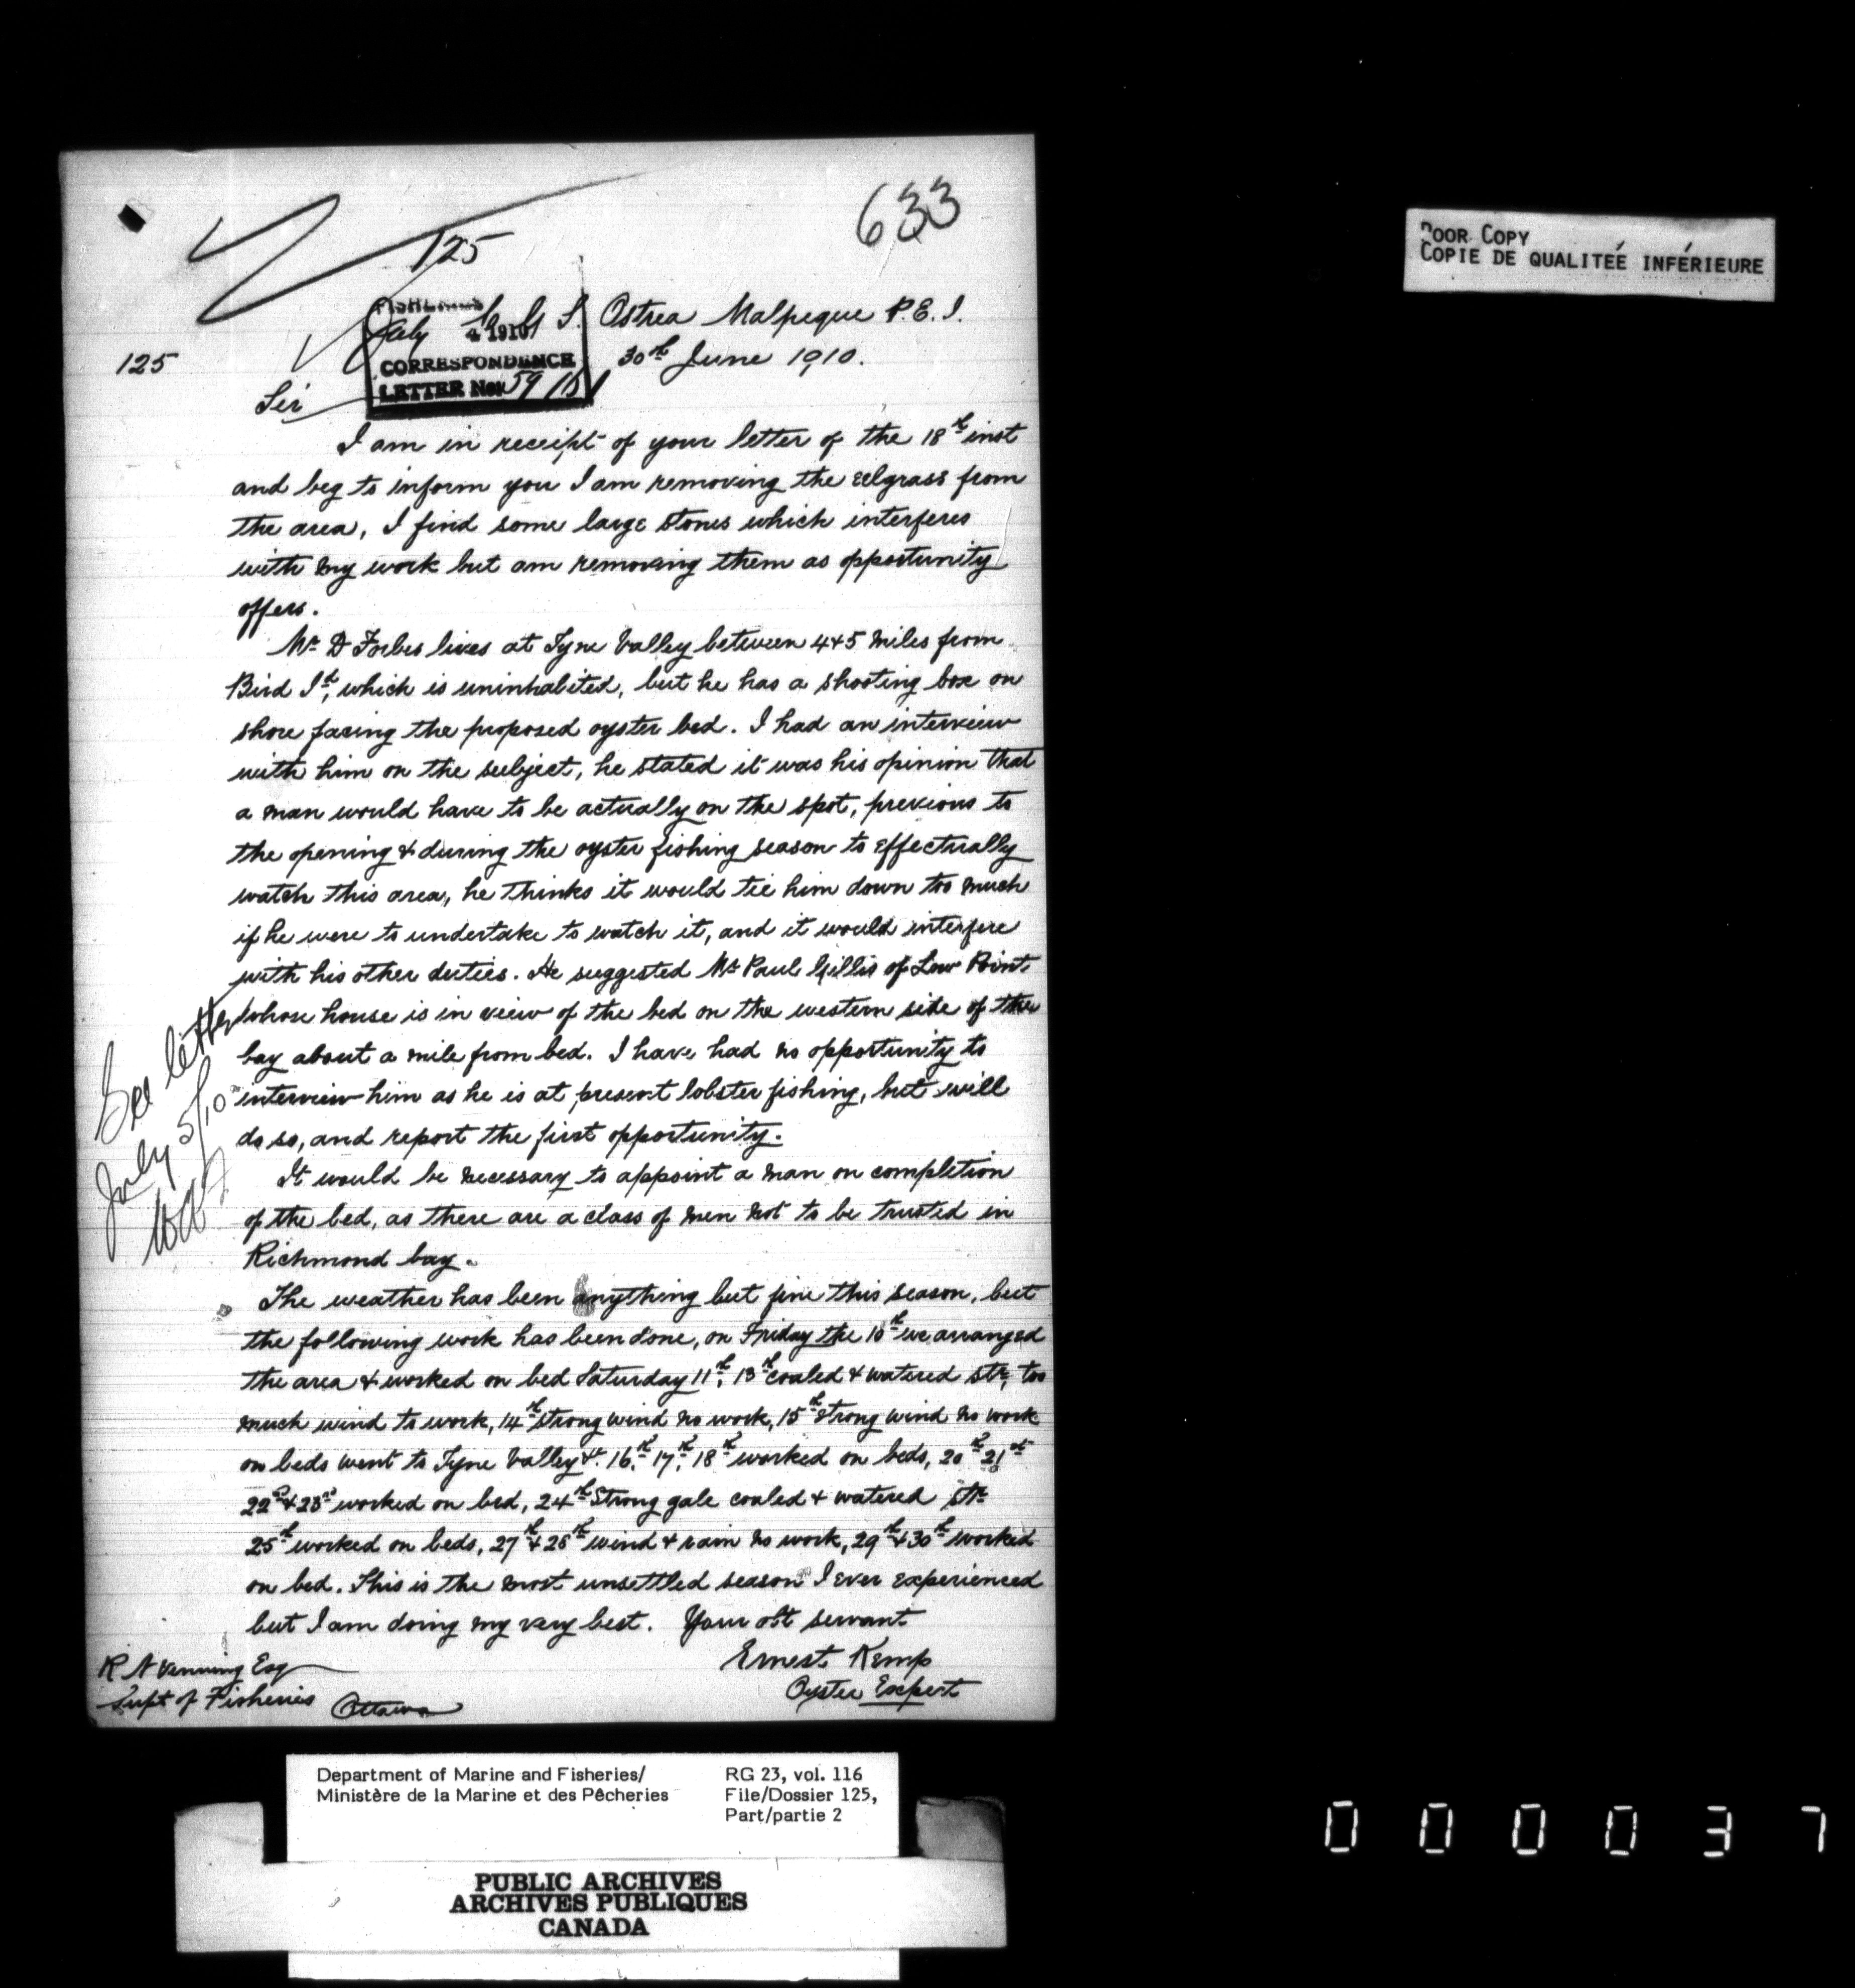 633
125
POOR COPY
COPIE DE QUALITÉE INFÉRIEURE
FISHERIES
July 4 1910
CORRESPONDENCE
LETTER No. 59
S. Ostrea Malpeque P.E.I.
125
30th June 1910.
Sir
I am in receipt of your letter of the 18th inst
and beg to inform you I am removing the eelgrass from
the area, I find some large stones which interferes
with my work but am removing them as opportunity
offers.
Mr D Forbes lives at Tyne Valley between 4 & 5 miles from
Bird Id, which is uninhabited, but he has a shooting box on
shore facing the proposed oyster bed. I had an interview
with him on the subject, he stated it was his opinion that
a man would have to be actually on the spot, previous to
the opening & during the oyster fishing season to effectually
watch this area, he thinks it would tie him down too much
if he were to undertake to watch it, and it would interfere
with his other duties. He suggested Mr Paul Gillis of Low Point
whose house is in view of the bed on the western side of the
bay about a mile from bed. I have had no opportunity to
interview him as he is at present lobster fishing, but will
do so, and report the first opportunity.
See letter
July 5/10
It would be necessary to appoint a man on completion
of the bed, as there are a class of men not to be trusted in
Richmond bay.
The weather has been anything but fine this season, but
the following work has been done, on Friday the 10th we arranged
the area & worked on bed Saturday 11th, 13th coaled & watered Str, too
much wind to work, 14th strong wind no work, 15th strong wind no work
on beds went to Tyne Valley &. 16th 17th, 18th worked on beds, 20th 21st
22nd & 23rd worked on bed, 24th Strong gale coaled & watered Str
25th worked on beds, 27th & 28th wind & rain no work, 29th & 30th worked
on bed. This is the most unsettled season I ever experienced
but I am doing my very best. Your obt servant
Ernest Kemp
Oyster Expert
R N Venning Esq
Supt of Fisheries Ottawa
Department of Marine and Fisheries/
Ministère de la Marine et des Pêcheries
RG 23, vol. 116
File/Dossier 125,
Part/partie 2
PUBLIC ARCHIVES
ARCHIVES PUBLIQUES
CANADA
000037